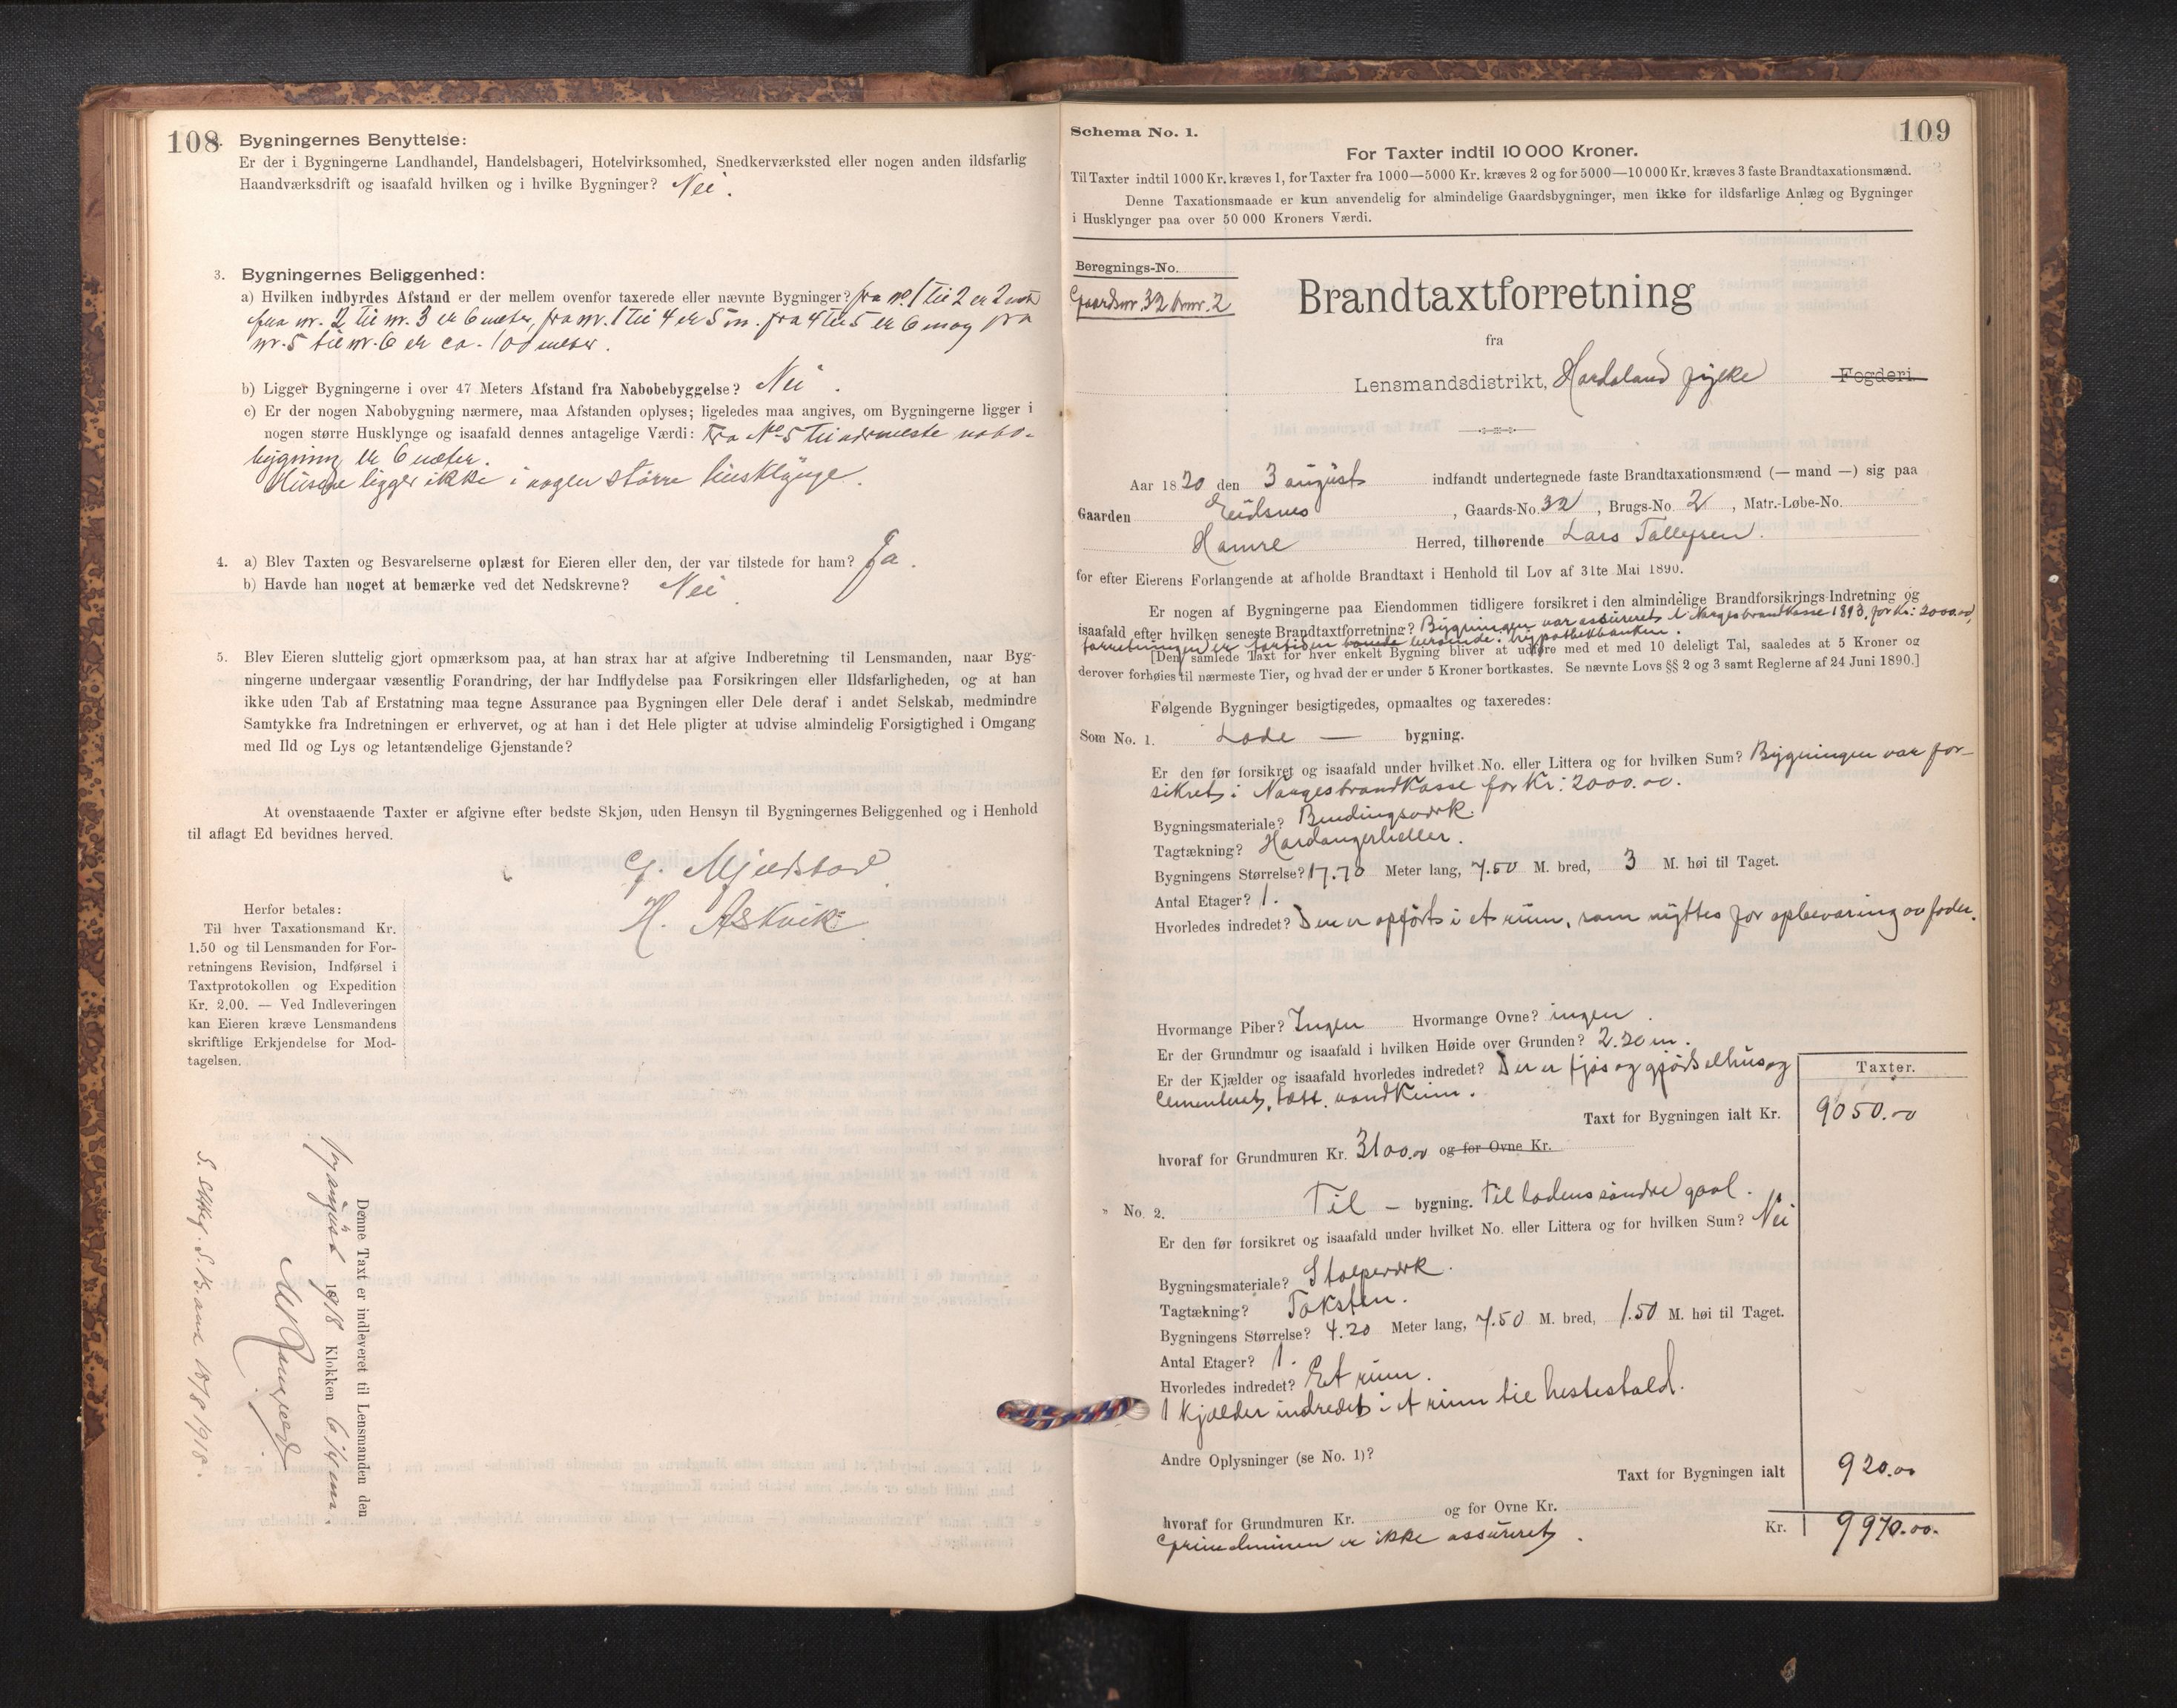 108
2. Bygningernes Benyttelse:
Er der i Bygningerne Landhandel, Handelsbageri, Hotelvirksomhed, Snedkerværksted eller nogen anden ildsfarlig
Haandværksdrift og isaafald hvilken og i hvilke Bygninger? Nei.
3. Bygningernes Beliggenhed:
a) Hvilken indbyrdes Afstand er der mellem ovenfor taxerede eller nævnte Bygninger? fra no. 1 til 2 er 2 mtr
fra nr. 2 til nr. 3 er 6 meter, fra nr. 1 til 4 er 5 m. fra 4 til 5 er 6 m og fra
nr. 5 til nr. 6 er ca. 100 meter.
b) Ligger Bygningerne i over 47 Meters Afstand fra Nabobebyggelse? Nei.
c) Er der nogen Nabobygning nærmere, maa Afstanden oplyses; ligeledes maa angives, om Bygningerne ligger i
nogen større Husklynge og isaafald dennes antagelige Værdi: Fra No 5 til nærmeste nabo-
bygning er 6 meter.
Husene ligger ikke i nogen større husklynge.
4. a) Blev Taxten og Besvarelserne oplæst for Eieren eller den, der var tilstede for ham? Ja.
b) Havde han noget at bemærke ved det Nedskrevne? Nei
5. Blev Eieren sluttelig gjort opmærksom paa, at han strax har at afgive Indberetning til Lensmanden, naar Byg-
ningerne undergaar væsentlig Forandring, der har Indflydelse paa Forsikringen eller Ildsfarligheden, og at han
ikke uden Tab af Erstatning maa tegne Assurance paa Bygningen eller Dele deraf i andet Selskab, medmindre
Samtykke fra Indretningen er erhvervet, og at han i det Hele pligter at udvise almindelig Forsigtighed i Omgang
med Ild og Lys og letantændelige Gjenstande?
At ovenstaaende Taxter er afgivne efter bedste Skjøn, uden Hensyn til Bygningernes Beliggenhed og i Henhold
til aflagt Ed bevidnes herved.
G. Mjelstad
H. Askvik
Herfor betales:
Til hver Taxationsmand Kr.
1.50 og til Lensmanden for For-
retningens Revision, Indførsel i
Taxtprotokollen og Expedition
Kr. 2.00. — Ved Indleveringen
kan Eieren kræve Lensmandens
skriftlige Erkjendelse for Mod-
tagelsen.
Denne Taxt er indleveret til Lensmanden den
august 1918 Klokken 6
18/8 1918.
Schema No. 1.
109
For Taxter indtil 10 000 Kroner.
Til Taxter indtil 1000 Kr. kræves 1, for Taxter fra 1000—5000 Kr. kræves 2 og for 5000—10 000 Kr. kræves 3 faste Brandtaxationsmænd.
Denne Taxationsmaade er kun anvendelig for almindelige Gaardsbygninger, men ikke for ildsfarlige Anlæg og Bygninger
i Husklynger paa over 50 000 Kroners Værdi.
Beregnings-No.
Gaardsnr. 32 brnr. 2
Brandtaxtforretning
fra
Lensmandsdistrikt, Hordaland fylke Fogderi.
Aar 1820 den 3 august indfandt undertegnede faste Brandtaxationsmænd (— mand —) sig paa
Gaarden Eidsnes, Gaards-No. 32, Brugs-No. 2, Matr.-Løbe-No.
Hamre Herred, tilhørende Lars Tollefsen.
for efter Eierens Forlangende at afholde Brandtaxt i Henhold til Lov af 31te Mai 1890.
Er nogen af Bygningerne paa Eiendommen tidligere forsikret i den almindelige Brandforsikrings-Indretning og
isaafald efter hvilken seneste Brandtaxtforretning? Bygningen var assureret i Norgesbrandkasse 1893, for Kr: 2000.00,
forretningen er hypothekbanken.
[Den samlede Taxt for hver enkelt Bygning bliver at udføre med et med 10 deleligt Tal, saaledes at 5 Kroner og
derover forhøies til nærmeste Tier, og hvad der er under 5 Kroner bortkastes. Se nævnte Lovs §§ 2 og 3 samt Reglerne af 24 Juni 1890.]
Følgende Bygninger besigtigedes, opmaaltes og taxeredes:
Som No. 1. Lade — bygning.
Er den før forsikret og isaafald under hvilket No. eller Littera og for hvilken Sum? Bygningen var for-
sikret i Norgesbrandkasse for Kr: 2000.00.
Bygningsmateriale? Bindingsverk.
Tagtækning? Hardangerheller.
Bygningens Størrelse? 17.70 Meter lang, 7.50 M. bred, 3 M. høi til Taget.
Antal Etager? 1.
Hvorledes indredet? Den er opført i et rum, som nyttes for opbevaring av foder.
Hvormange Piber? Ingen Hvormange Ovne? ingen.
Er der Grundmur og isaafald i hvilken Høide over Grunden? 2.20 m.
Er der Kjælder og isaafald hvorledes indredet? Der er fjøs og gjødselhus og
Cementert, tæt
Taxter.
Taxt for Bygningen ialt Kr. 9050.00
hvoraf for Grundmuren Kr. 3100.00 og for Ovne Kr.
" No. 2. Til — bygning. Til ladens søndre gavl.
Er den før forsikret og isaafald under hvilket No. eller Littera og for hvilken Sum? Nei
Bygningsmateriale? Stolpeverk.
Tagtækning? Taksten.
Bygningens Størrelse? 4.20 Meter lang, 7.50 M. bred, 1.50 M. høi til Taget.
Antal Etager? 1.
Hvorledes indredet? Et rum.
1 Kjælder indredet i et rum til hestestald.
Andre Oplysninger (se No. 1)?
Taxt for Bygningen ialt 920.00
hvoraf for Grundmuren Kr. og for Ovne Kr.
Grundmuren er ikke assureret.
Kr. 9970.00.